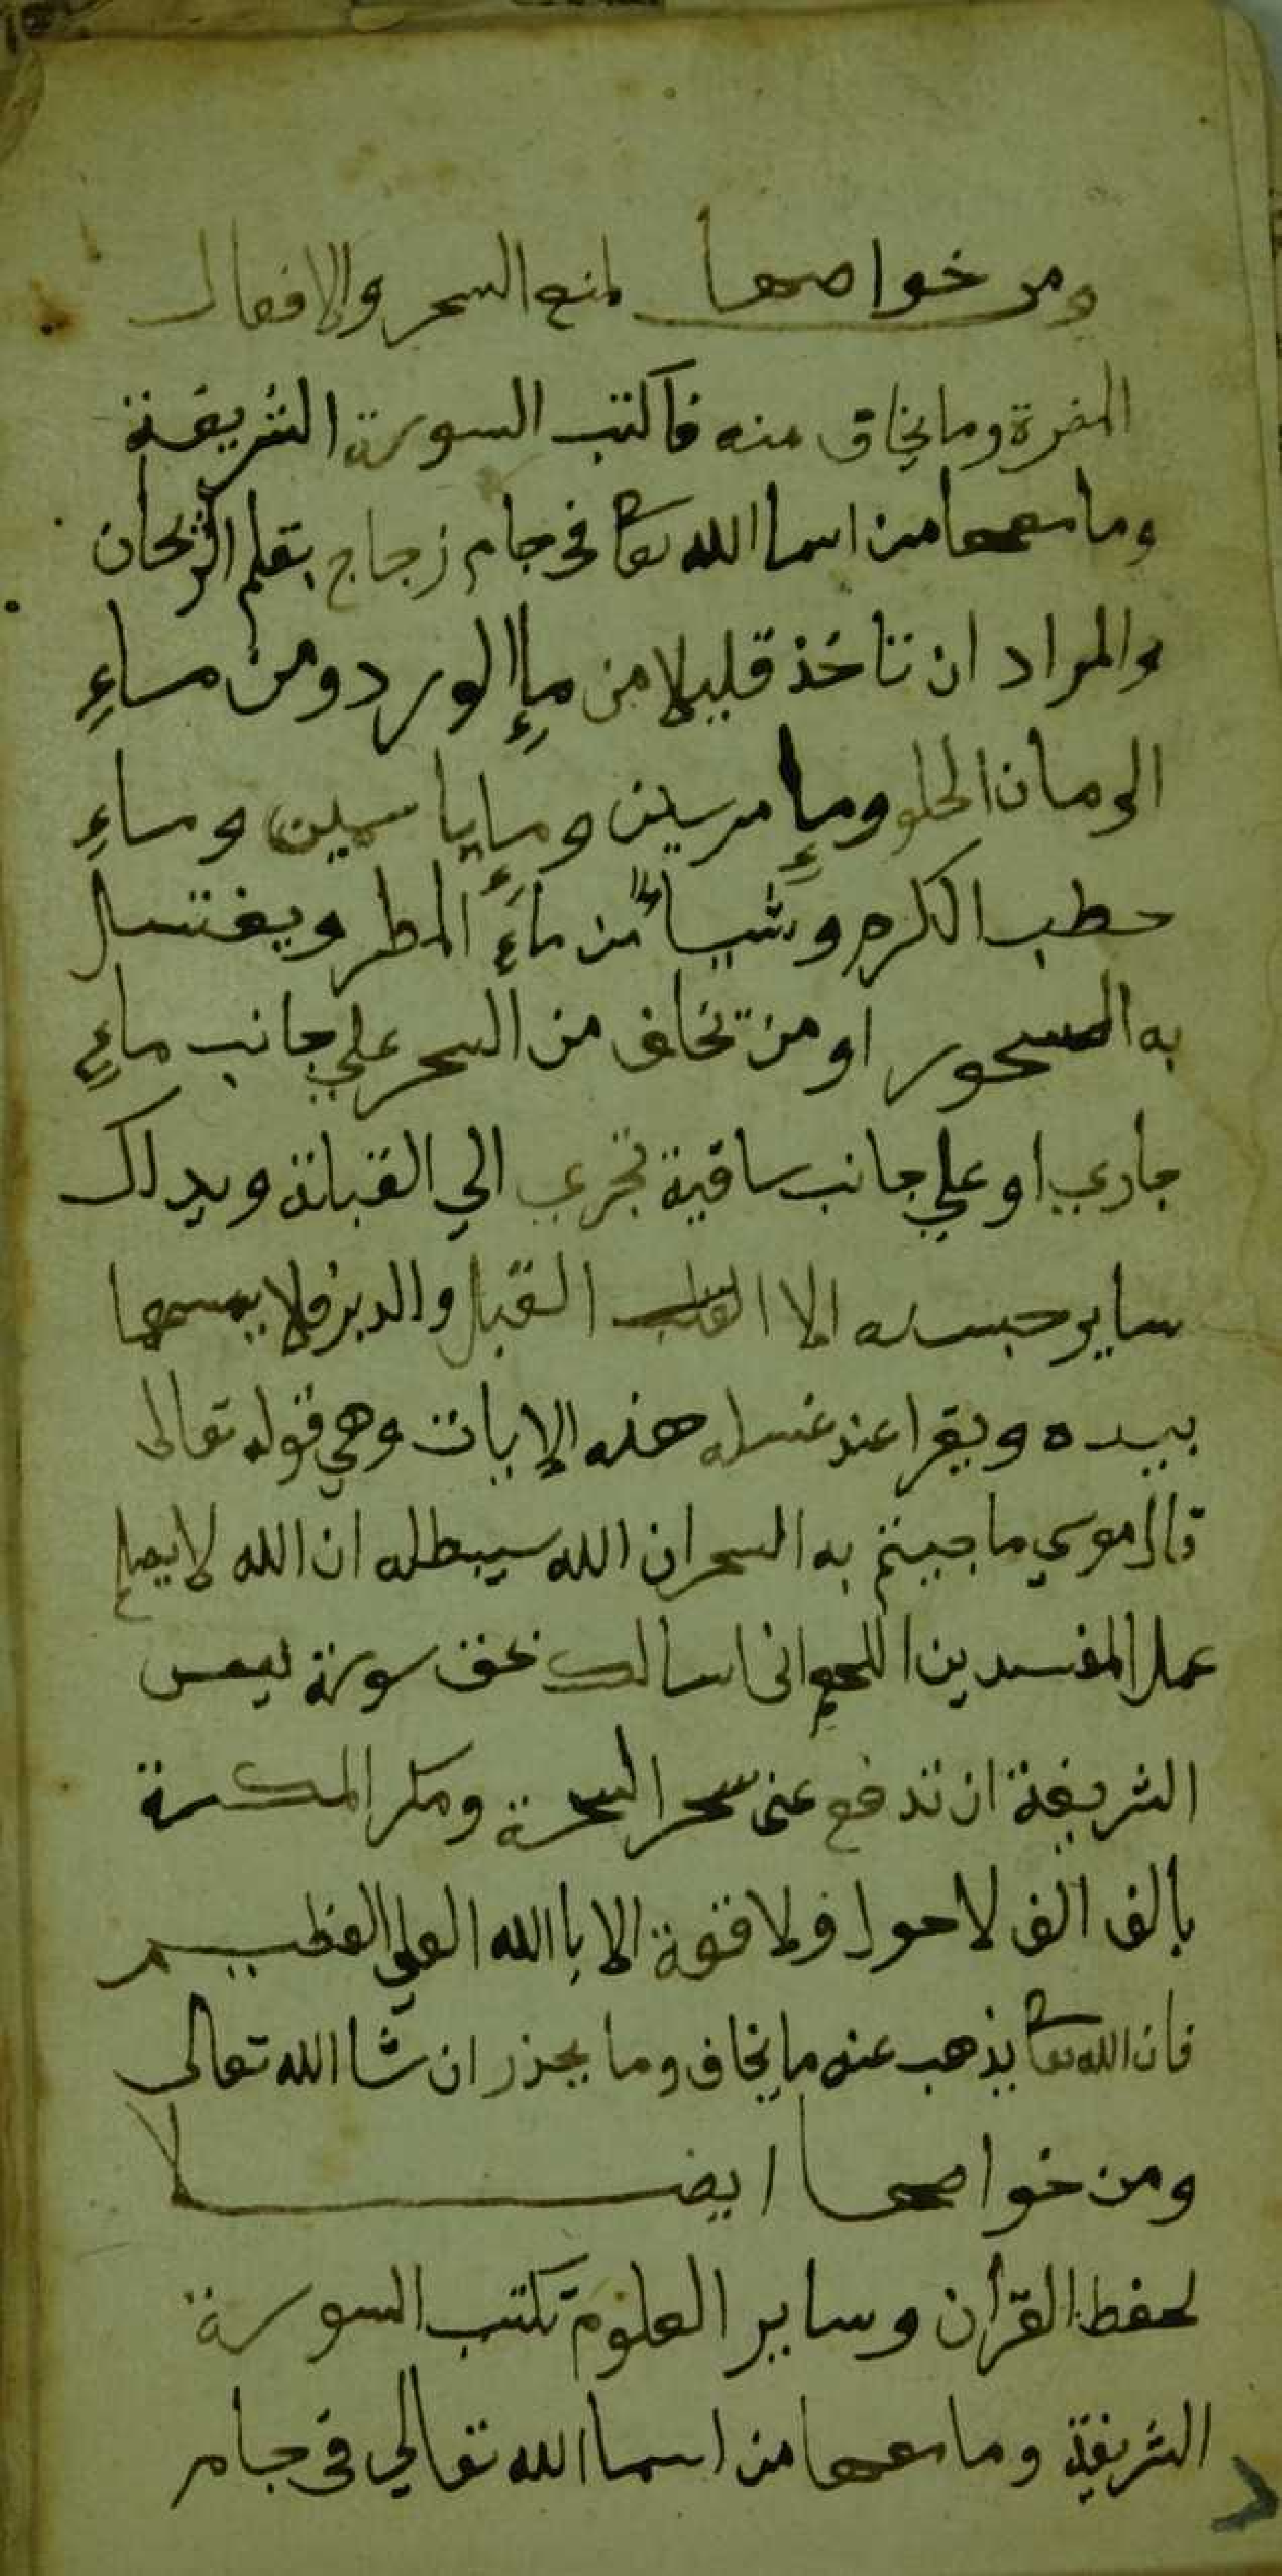 ومن خواصها لمنع السحر والافعال
المضرة وما يخاف منه فاكتب السورة الشريفة
وما معها من اسما الله تعا في جام زجاج بقلم الريحان
والمراد ان تاخذ قليلا من ماءِ الورد ومن ماءِ
الرمان الحلو وماءِ مرسين وماءِ ياسمين وماءِ
حطب الكرم وشياً من ماءِ المطر ويغتسل
به المسحور او من تخاف من السحر علي جانب ماءِ
جاري او علي جانب ساقية تجري الي القبلة ويدلك
ساير جسده الا القبل والدبر فلا يمسهما
بيده ويقرا عند غسله هذه الايات وهي قوله تعالى
قال موسي ما جيتم به السحر ان الله سيبطله ان الله لا يصلح
عمل المفسدين اللهم اني اسالك بحق سورة يس
الشريفة ان تدفع عني سحر السحرة ومكر المكرة
بالف الف لا حول ولا قوة الا باالله العلي العظيم
فان الله تعا يذهب عنه ما يخاف وما يحذر ان شا الله تعالى
ومن خواصها ايضا
لحفظ القرأن وساير العلوم تكتب السورة
الشريفة وما معها من اسما الله تعالي في جام